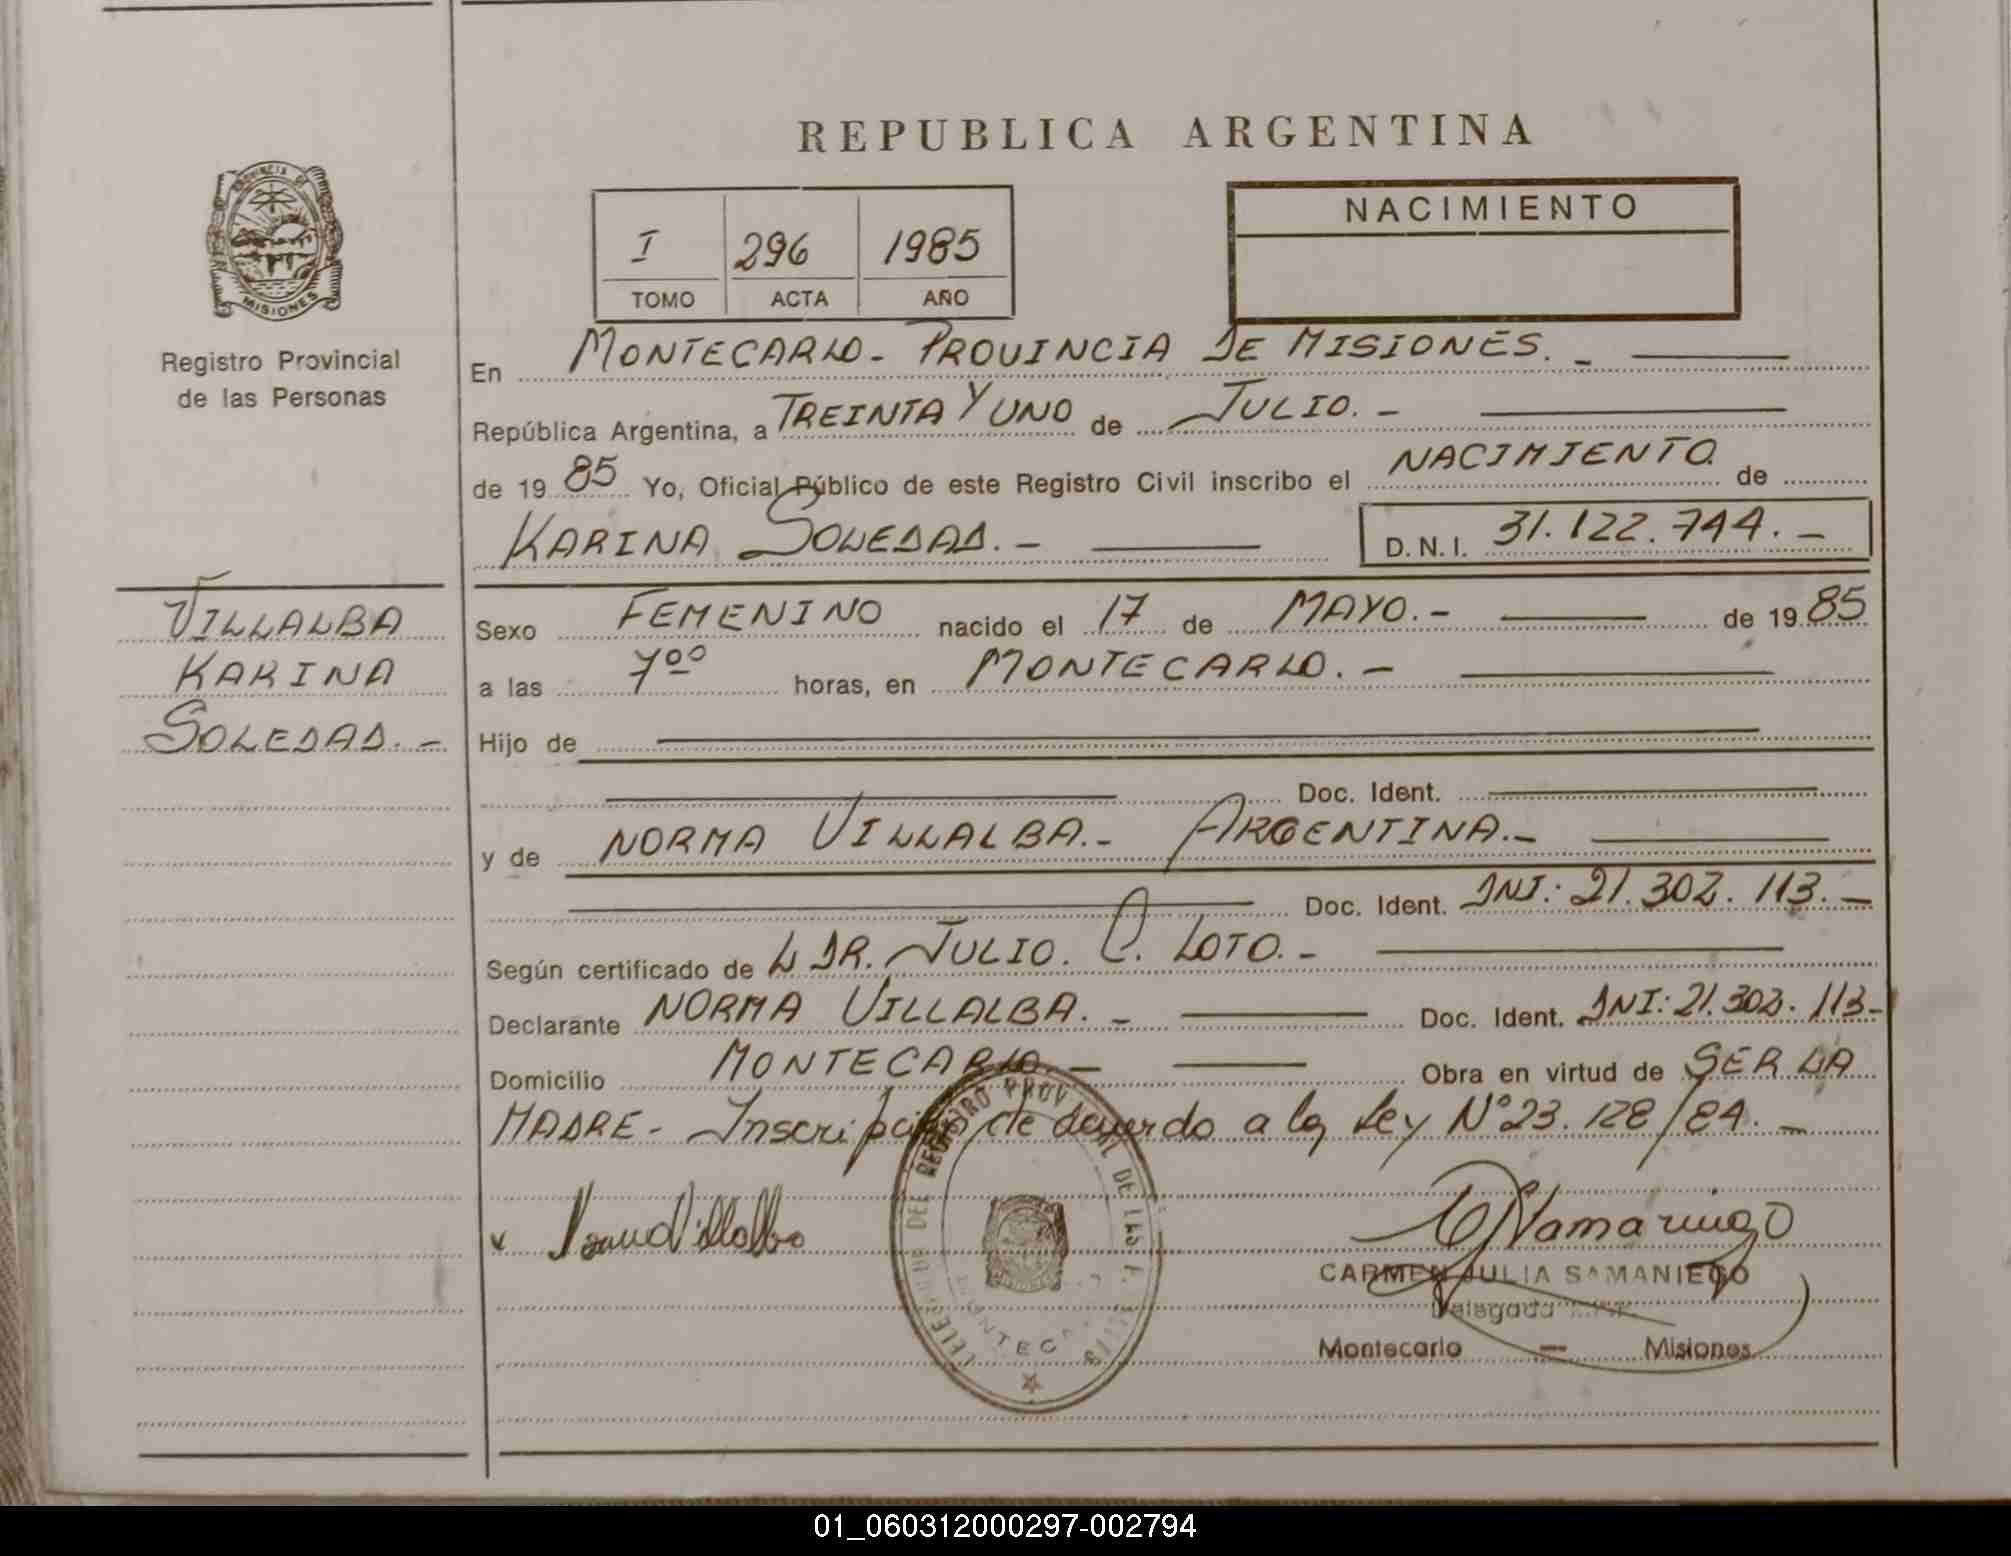 REPUBLICA ARGENTINA
PROVINCIA DE
MISIONES
Registro Provincial
de las Personas
I 296 1985
TOMO ACTA AÑO
NACIMIENTO
En MONTECARLO - PROVINCIA DE MISIONES. -
República Argentina, a TREINTA Y UNO de JULIO. -
de 19 85 Yo, Oficial Público de este Registro Civil inscribo el NACIMIENTO de
KARINA SOLEDAD. - D.N.I. 31.122.744. -
VILLALBA
KARINA
SOLEDAD. -
Sexo FEMENINO nacido el 17 de MAYO. - de 19 85
a las 7ºº horas, en MONTECARLO. -
Hijo de
Doc. Ident.
y de NORMA VILLALBA. - ARGENTINA. -
Doc. Ident. DNI: 21.302.113. -
Según certificado de DR. JULIO. C. LOTO. -
Declarante NORMA VILLALBA. - Doc. Ident. DNI: 21.302.113-
Domicilio MONTECARLO. - Obra en virtud de SER LA
MADRE - Inscripción de acuerdo a la Ley Nº 23.128/84. -
REGISTRO PROVINCIAL DE LAS
CARMEN JULIA SAMANIEGO
Delegada
Montecarlo — Misiones
01_060312000297-002794